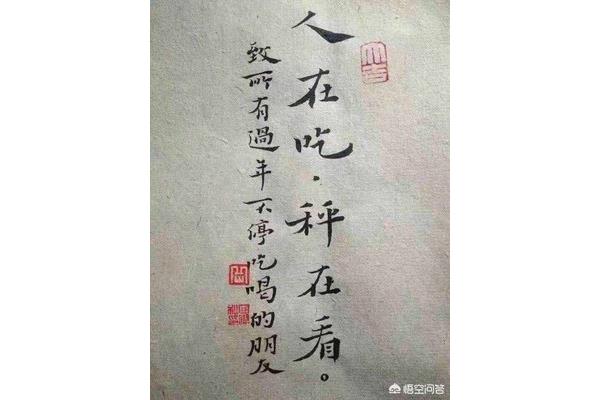 大吉
人在吃，秤在看。
致所有過年不停吃喝的朋友
悟空问答